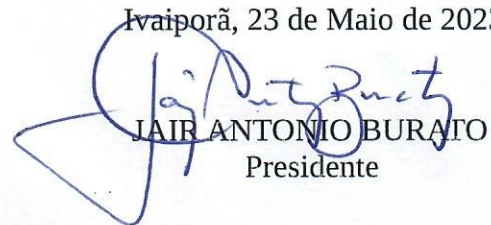 Ivaiporã, 23 de Maio de 202
JAIR ANTONIO BURATO
Presidente